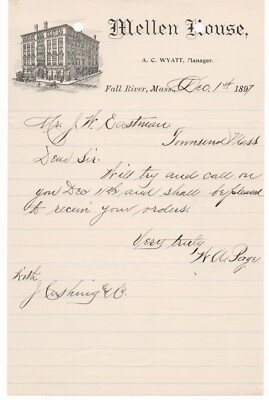 Mellen House,
A. C. WYATT, Manager.
Fall River, Mass., Dec. 1st 1897
Mr. J. W. Eastman
Townsend Mass
Dear Sir.
Will try and call on
you Dec and shall be pleased
to receive your orders.
Very truly
Page
with
J Cushing & Co.